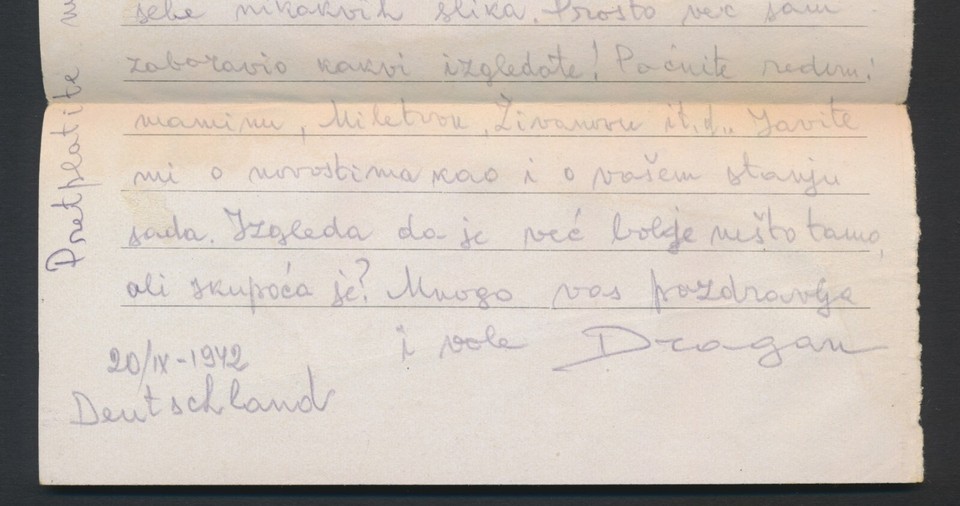 sebe nikakvih slika. Prosto već sam
zaboravio kakvi izgledate! Počnite redom:
maminu, Miletovu, Živanovu it.d.. Javite
mi o novostima kao i o vašem stanju
sada. Izgleda da je već bolje nešto tamo,
ali skupoća je? Mnogo vas pozdravlja
i vole Dragan
20/IX-1942
Deutschland
Pretplatite